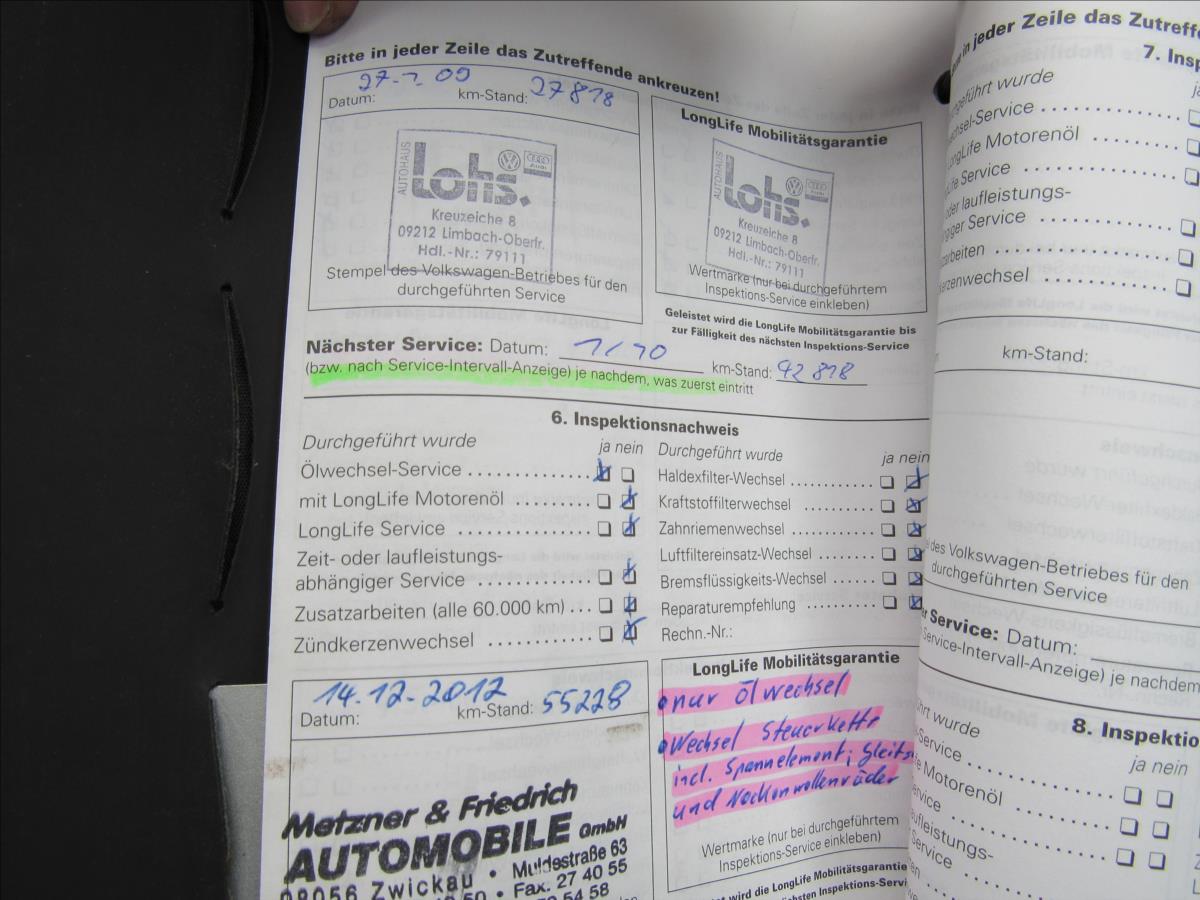 Bitte in jeder Zeile das Zutreffende ankreuzen!
27.1.09 27818
Datum: km-Stand:
AUTOHAUS
Lohs.
Audi
Kreuzeiche 8
09212 Limbach-Oberfr.
Hdl.-Nr.: 79111
Stempel des Volkswagen-Betriebes für den
durchgeführten Service
LongLife Mobilitätsgarantie
AUTOHAUS
Lohs.
Kreuzeiche 8
09212 Limbach-Oberfr.
Hdl.-Nr.: 79111
Wertmarke (nur bei durchgeführtem
Inspektions-Service einkleben)
Geleistet wird die LongLife Mobilitätsgarantie bis
zur Fälligkeit des nächsten Inspektions-Service
Nächster Service: Datum: 1/10 km-Stand: 42818
(bzw. nach Service-Intervall-Anzeige) je nachdem, was zuerst eintritt
6. Inspektionsnachweis
Durchgeführt wurde ja nein
Ölwechsel-Service
mit LongLife Motorenöl
LongLife Service
Zeit- oder laufleistungs-
abhängiger Service
Zusatzarbeiten (alle 60.000 km)
Zündkerzenwechsel
Durchgeführt wurde ja nein
Haldexfilter-Wechsel
Kraftstoffilterwechsel
Zahnriemenwechsel
Luftfiltereinsatz-Wechsel
Bremsflüssigkeits-Wechsel
Reparaturempfehlung
Rechn.-Nr.:
14.12.2012 55228
Datum: km-Stand:
Metzner & Friedrich
AUTOMOBILE GmbH
08056 Zwickau • Muldestraße 63
• Fax. 27 40 55
54 58
LongLife Mobilitätsgarantie
• nur Ölwechsel
• Wechsel Steuerkette
incl. Spannelement; Gleits
und Nockenwellenräder
Wertmarke (nur bei durchgeführtem
Inspektions-Service einkleben)
wird die LongLife Mobilitätsgarantie
des nächsten Inspektions-Servi
in jeder Zeile das Zutreffe
7. Insp
geführt wurde
sel-Service
LongLife Motorenöl
fe Service
der laufleistungs-
giger Service
arbeiten
kerzenwechsel
km-Stand:
des Volkswagen-Betriebes für den
durchgeführten Service
r Service: Datum:
Service-Intervall-Anzeige) je nachdem
8. Inspektio
führt wurde ja nein
-Service
e Motorenöl
rvice
aufleistungs-
Service